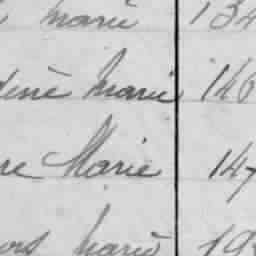 marie 134
dine Marie 146
re Marie 147
ors Marie 19